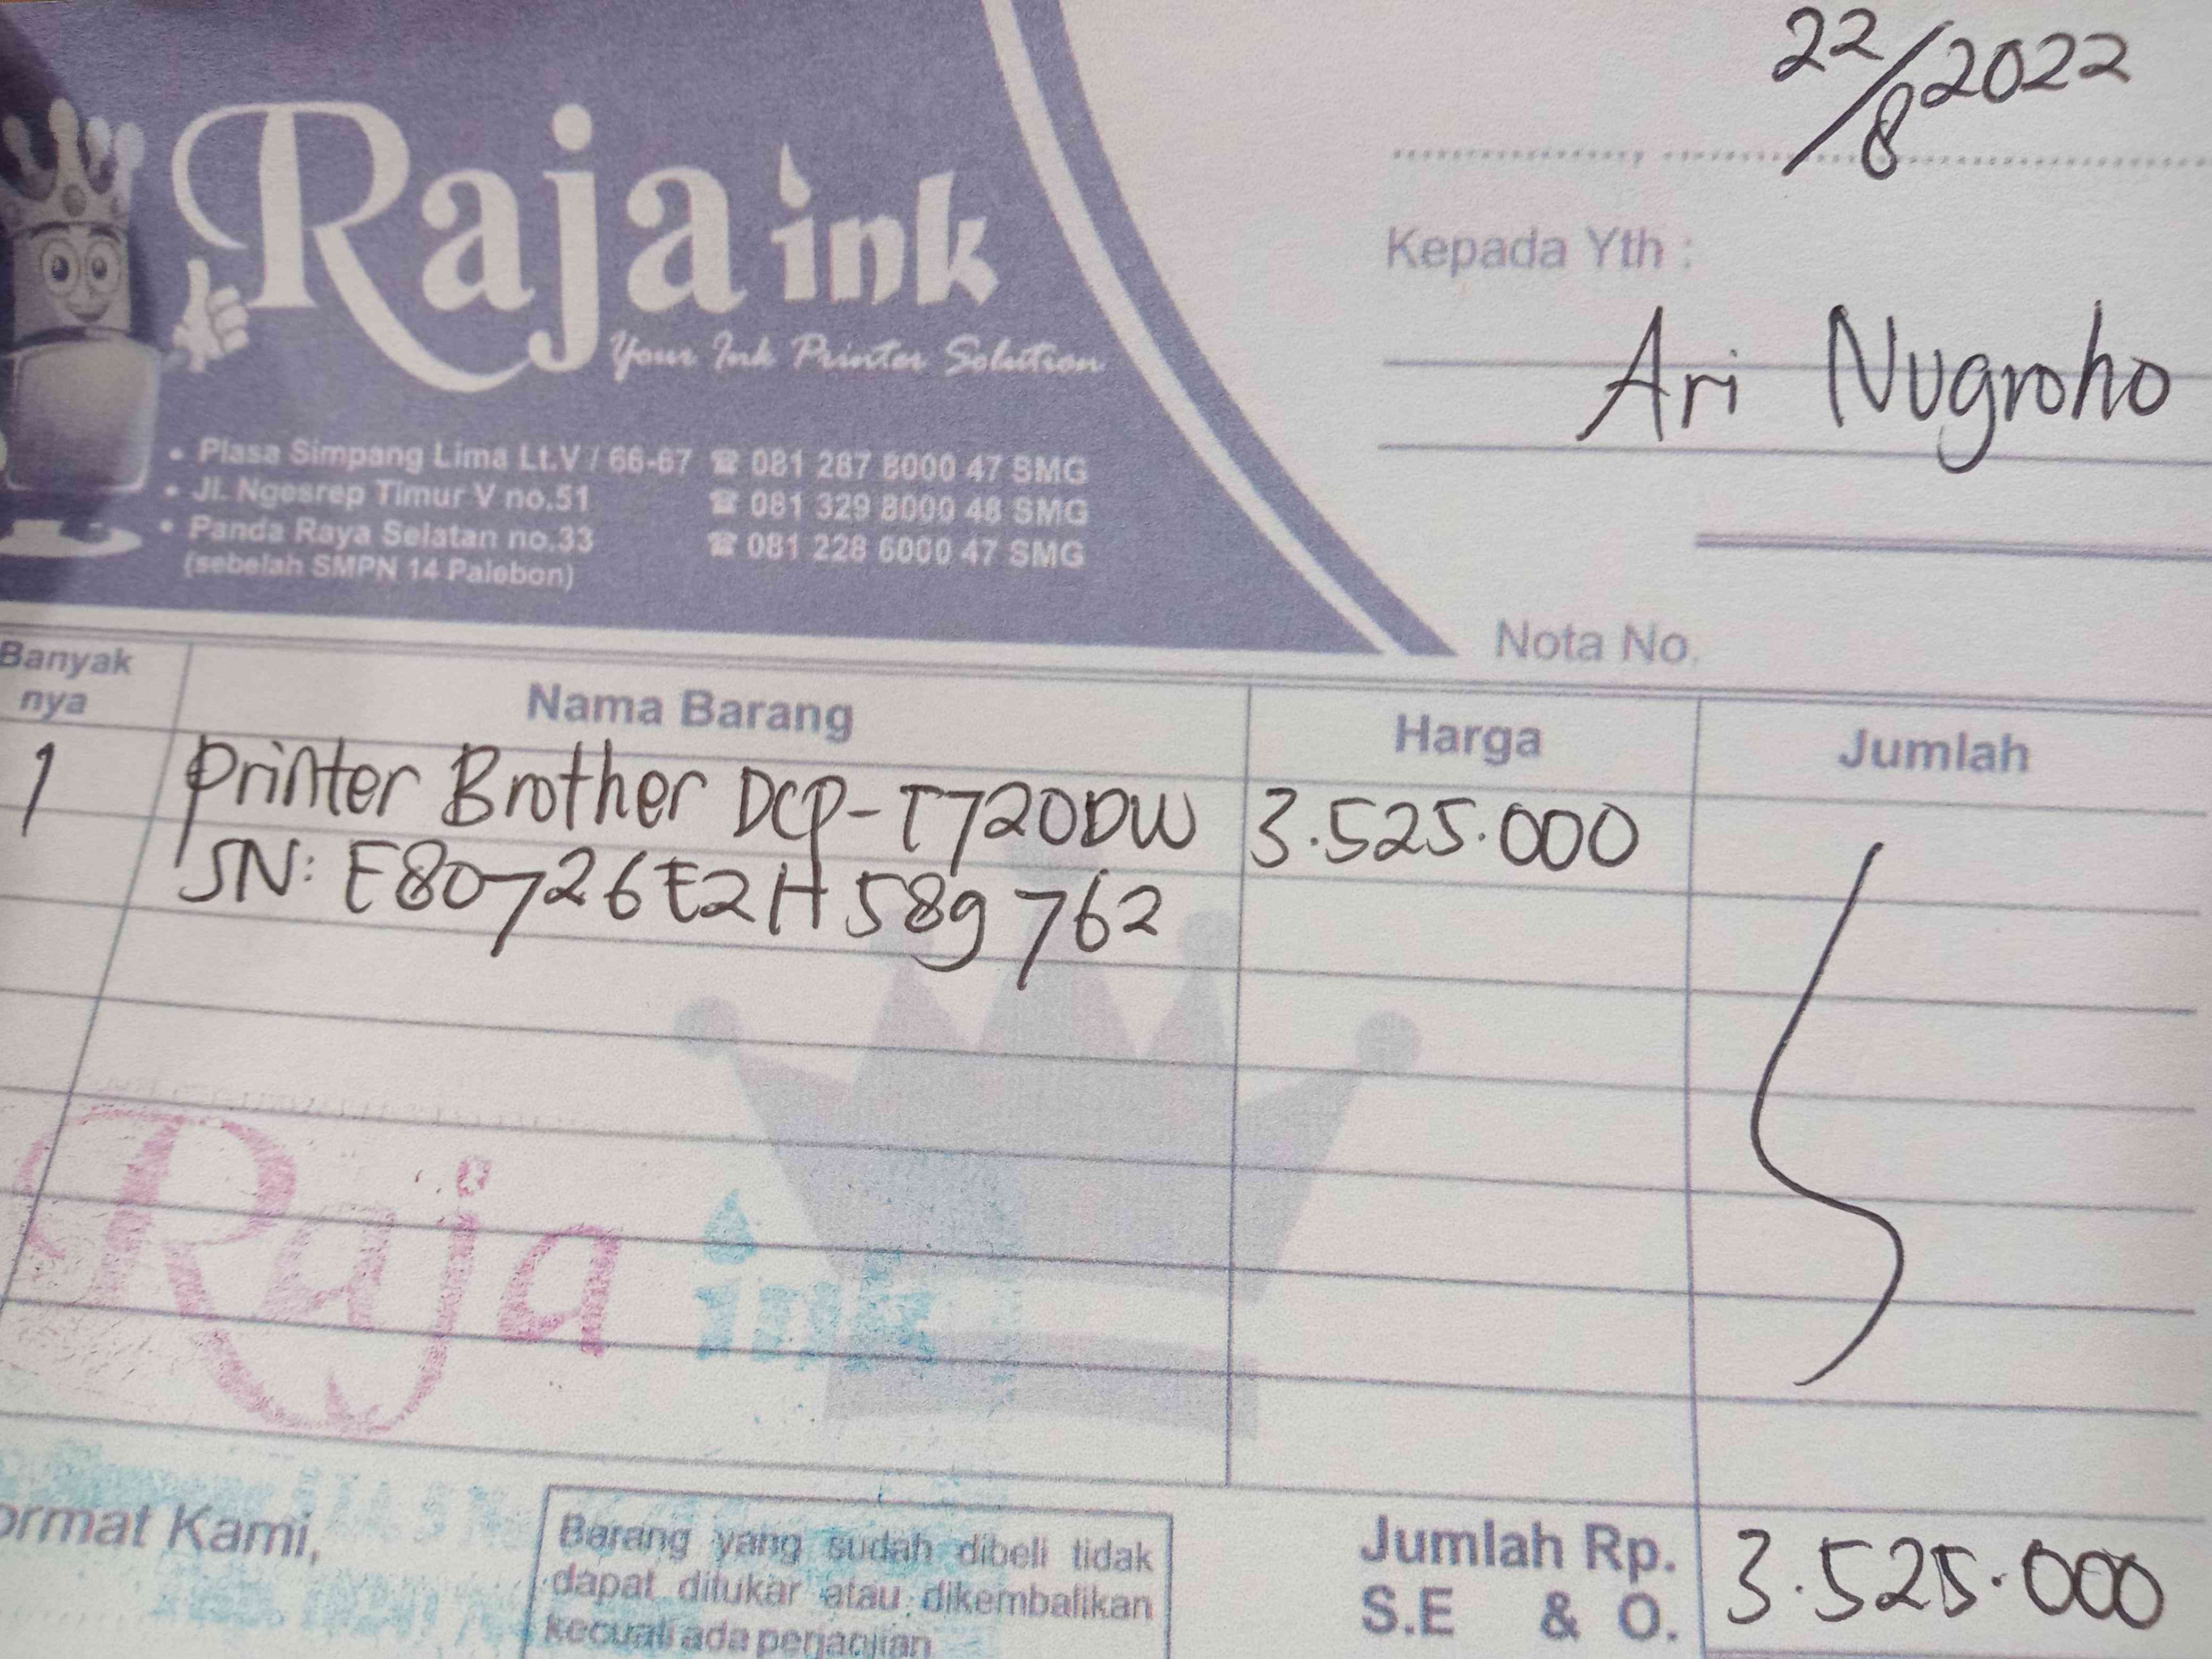 22/8 2022
Raja ink
Your Ink Printer Solution
• Plasa Simpang Lima Lt.V / 66-67 ☎ 081 287 8000 47 SMG
• Jl. Ngesrep Timur V no.51 ☎ 081 329 8000 48 SMG
• Panda Raya Selatan no.33 ☎ 081 228 6000 47 SMG
(sebelah SMPN 14 Palebon)
Kepada Yth :
Ari Nugroho
Nota No.
Banyak nya Nama Barang Harga Jumlah
1 Printer Brother DCP-T720DW 3.525.000
SN: E80726E2H589762
Raja ink
ormat Kami,
Barang yang sudah dibeli tidak
dapat ditukar atau dikembalikan
kecuali ada perjanjian
Jumlah Rp. 3.525.000
S.E & O.